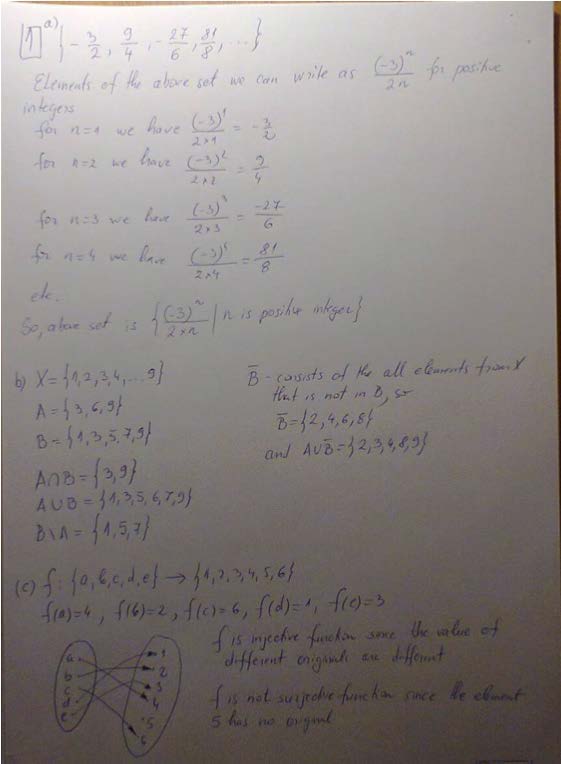 1 a) {-3/2, 9/4, -27/6, 81/8, ...}
Elements of the above set we can write as (-3)^n/2n for positive
integers
for n=1 we have (-3)^1/2×1 = -3/2
for n=2 we have (-3)^2/2×2 = 9/4
for n=3 we have (-3)^3/2×3 = -27/6
for n=4 we have (-3)^4/2×4 = 81/8
etc.
So, above set is {(-3)^n/2×n | n is positive integer}
b) X = {1,2,3,4,...9}
A = {3,6,9}
B = {1,3,5,7,9}
A∩B = {3,9}
A∪B = {1,3,5,6,7,9}
B\A = {1,5,7}
B̄ - consists of the all elements from X
that is not in B, so
B̄ = {2,4,6,8}
and A∪B̄ = {2,3,4,8,9}
(c) f: {a,b,c,d,e} → {1,2,3,4,5,6}
f(a)=4, f(b)=2, f(c)=6, f(d)=1, f(e)=3
a
b
c
d
e
1
2
3
4
5
6
f is injective function since the value of
different originals are different
f is not surjective function since the element
5 has no original